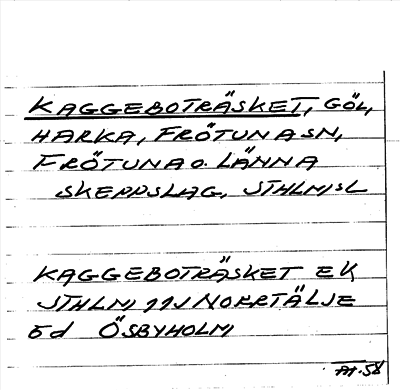 KAGGEBOTRÄSKET, GÖL,
HARKA, FRÖTUNA SN,
FRÖTUNA O. LÄNNA
SKEPPSLAG, STHLMSL
KAGGEBOTRÄSKET EK
STHLM 11J NORRTÄLJE
5d ÖSBYHOLM